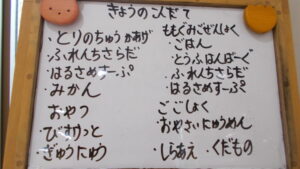 きょうのこんだて
・とりのちゅうかあげ
・ふれんちさらだ
・はるさめすーぷ
・みかん
おやつ
・びすけっと
・ぎゅうにゅう
ももぐみごぜんしょく
・ごはん
・とうふはんばーぐ
・ふれんちさらだ
・はるさめすーぷ
ごごしょく
・おやさいにゅうめん
・しらあえ ・くだもの